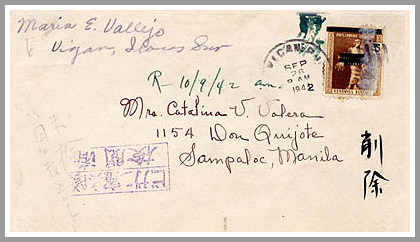 Maria E. Vallejo
Vigan, Ilocos Sur
VIGAN, PHI
SEP
26
AM
1942
PHILIPPINE
R- 10/9/42 am.
Mrs. Catalina V. Valera
1154 Don Quijote
Sampaloc, Manila
削除
検閲済